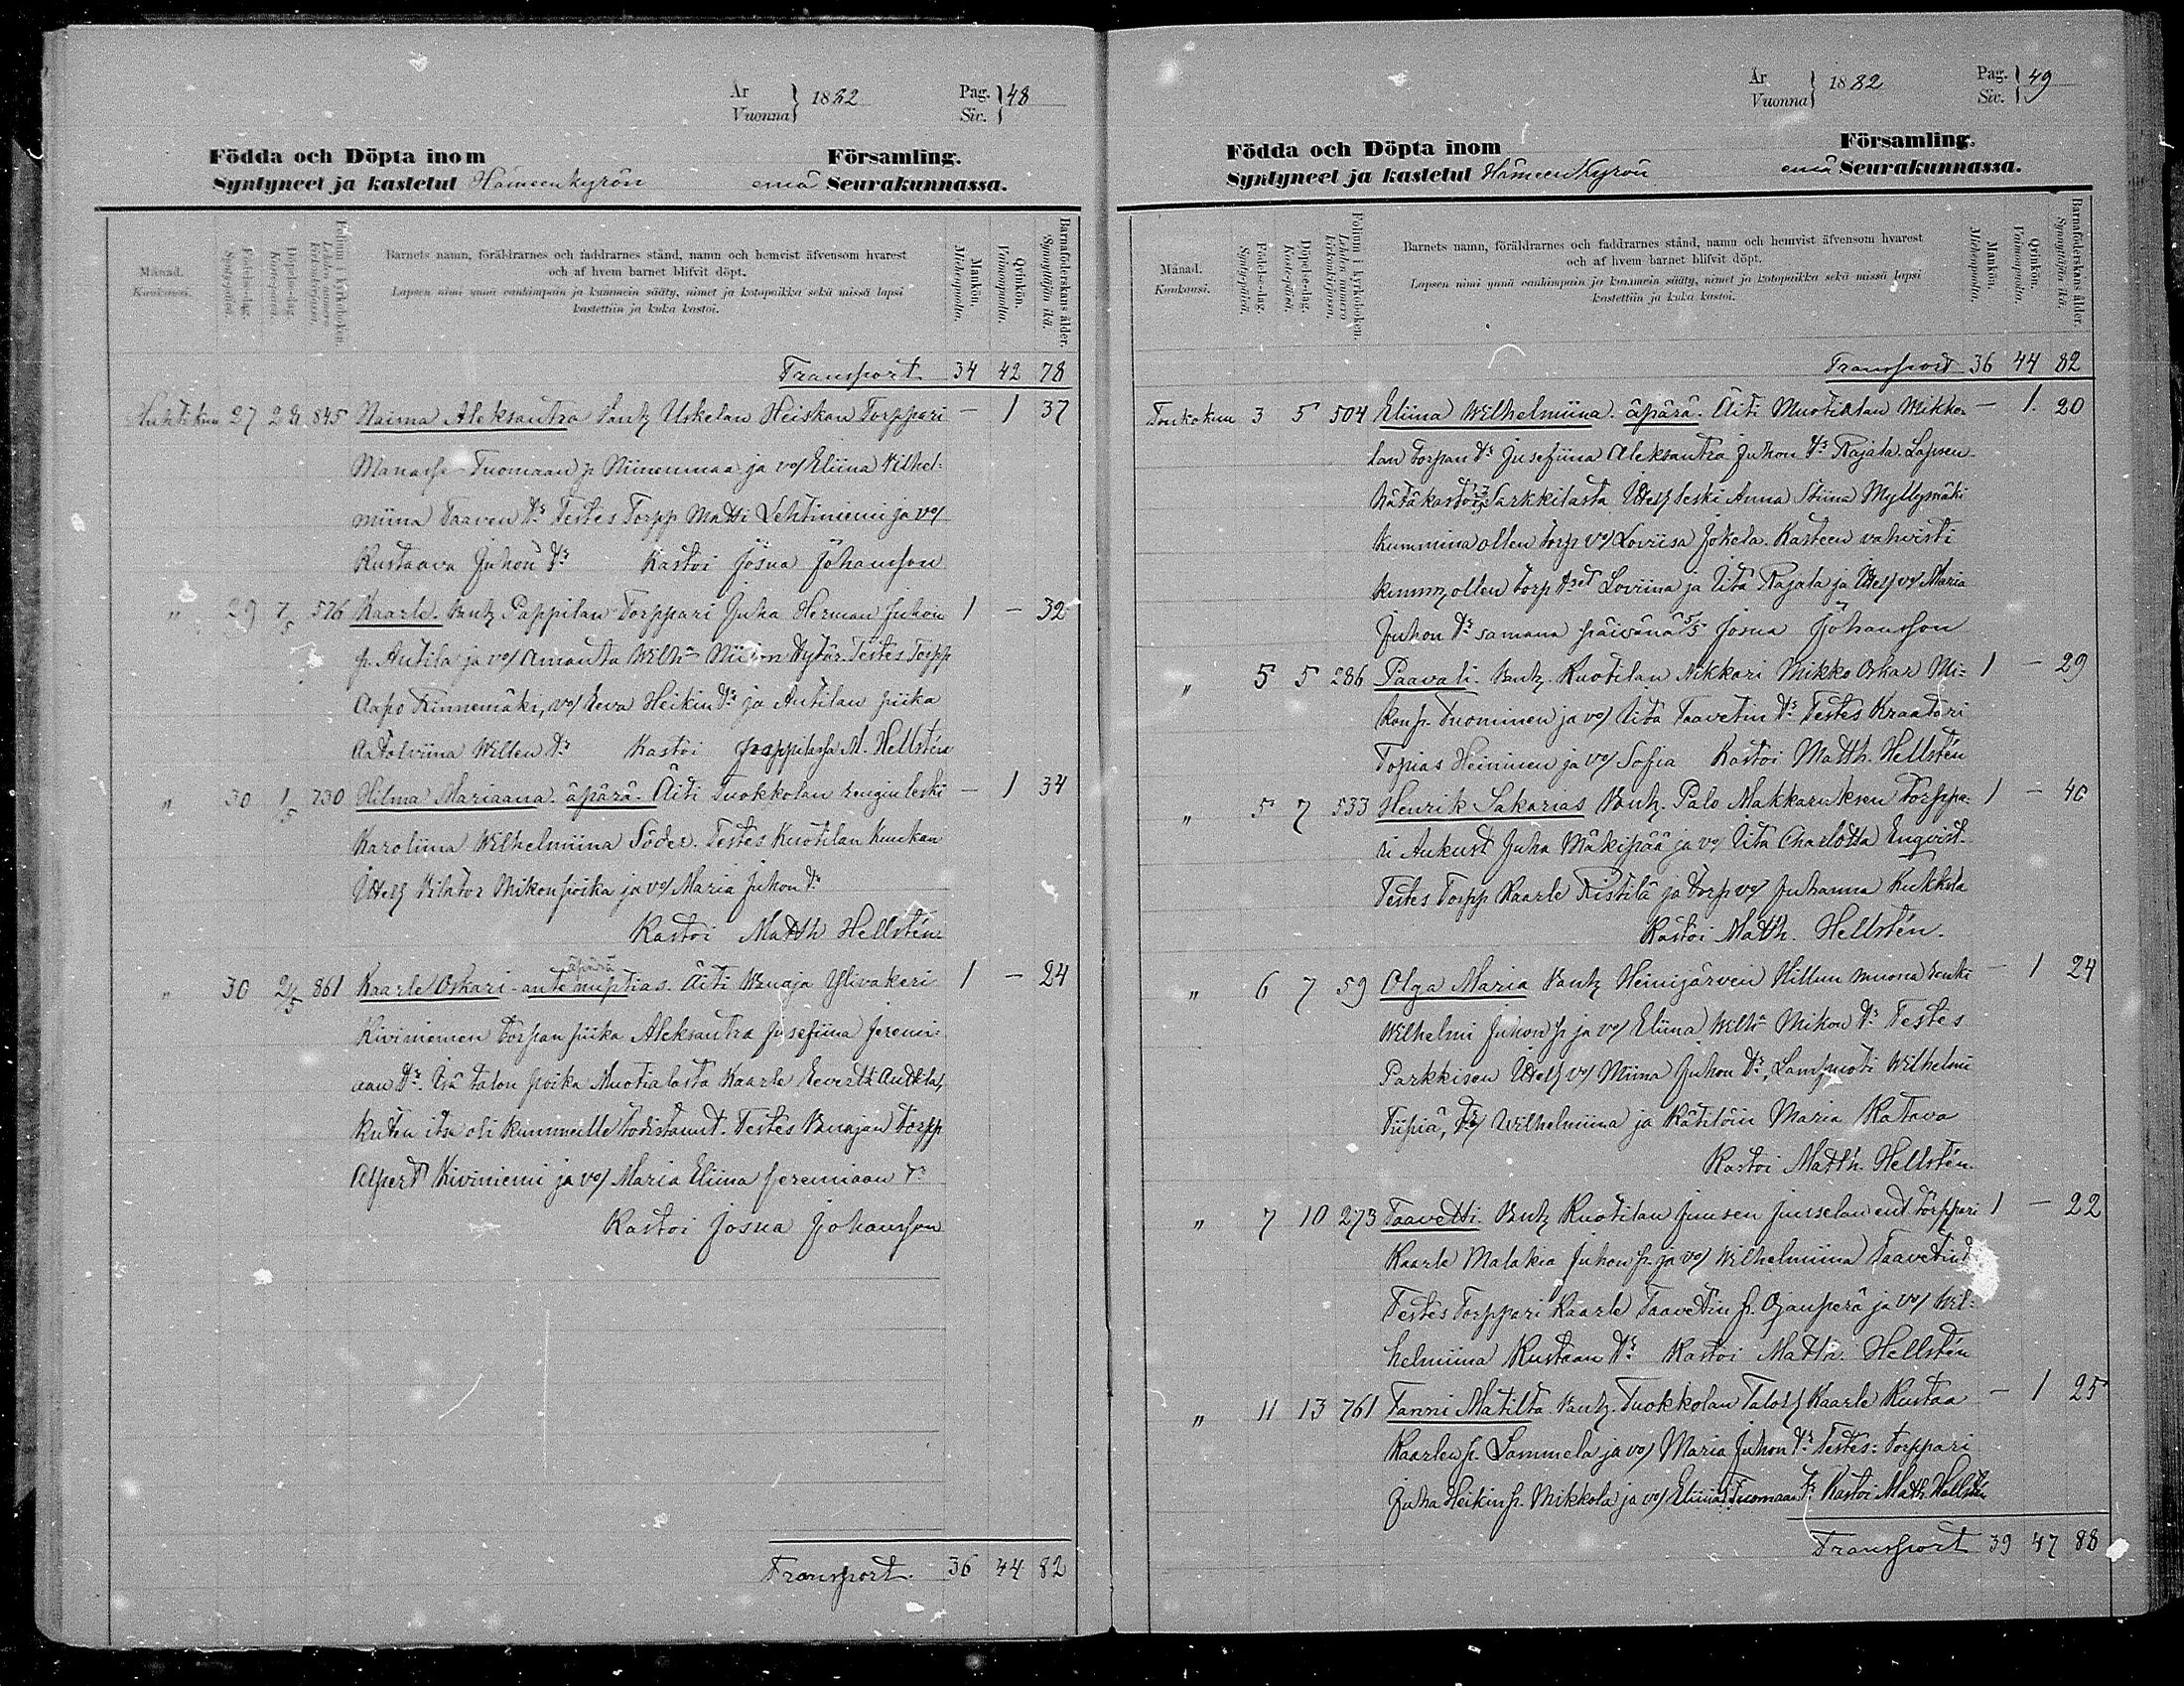 År
Vuonna } 1882
Pag.
Siv. } 48
Födda och Döpta inom Församling.
Syntyneet ja kastetut Hämeenkyrön emä Seurakunnassa.
Månad.
Kuukausi.
Födelse-dag.
Syntypäivä.
Döpelse-dag.
Kastepäivä.
Folium i kyrkoboken.
Lehden numero kirkonkirjassa.
Barnets namn, föräldrarnes och faddrarnes stånd, namn och hemvist äfvensom hvarest
och af hvem barnet blifvit döpt.
Lapsen nimi ynnä vanhimpain ja kummein sääty, nimet ja kotopaikka sekä missä lapsi
kastettiin ja kuka kastoi.
Mankön.
Miehenpuolia.
Qvinkön.
Vaimonpuolia.
Barnaföderskans ålder.
Synnyttäjän ikä.
Transport 34 42 78
Huhtikuu 27 28 845 Naima Aleksantra Vanh Uskelan Heiskan Torppari — 1 37
Manasse Tuomaan p. Niinenmaa ja vo/ Eliina Vilhel-
miina Taaven tr Testes Torpp Matti Lehtiniemi ja vo/
Kustaava Juhon tr Kastoi Josua Johansson
" 29 7/5 576 Kaarle. Vanh Pappilan Torppari Juha Herman Juhon 1 — 32
p. Antila ja vo/ Amanta Wilh:a Niilon tytär. Testes Torpp
Aapo Kinnemäki, vo/ Eeva Heikin tr ja Antilan piika
Aatolviina Willen tr Kastoi Pappilassa M. Hellstén
" 30 1/5 730 Hilma Mariaana. äpärä. Äiti Tuokkolan rengin leski — 1 34
Karoliina Wilhelmiina Söder. Testes Kuotilan Kuukan
Ittell Vihtor Mikon poika ja vo/ Maria Juhon tr
Kastoi Matth Hellstén
äpärä
" 30 21/5 861 Kaarle Oskari - ante nuptias. Äiti Wanaja Ylivakeri 1 — 24
Kiviniemen Torpan piika Aleksantra Josefiina Jeremi-
aan tr. Isä talon poika Muotialasta Kaarle Eevertti Anttila,
kuten itse oli kummeille todistanut. Testes Vanajan Torpp
Alpert Kiviniemi ja vo/ Maria Eliina Jeremiaan tr
Kastoi Josua Johansson
Transport. 36 44 82
År
Vuonna } 1882
Pag.
Siv. } 49
Födda och Döpta inom Församling.
Syntyneet ja kastetut Hämeenkyrön emä Seurakunnassa.
Månad.
Kuukausi.
Födelse-dag.
Syntypäivä.
Döpelse-dag.
Kastepäivä.
Folium i kyrkoboken.
Lehden numero kirkonkirjassa.
Barnets namn, föräldrarnes och faddrarnes stånd, namn och hemvist äfvensom hvarest
och af hvem barnet blifvit döpt.
Lapsen nimi ynnä vanhimpain ja kummein sääty, nimet ja kotopaikka sekä missä lapsi
kastettiin ja kuka kastoi.
Mankön.
Miehenpuolia.
Qvinkön.
Vaimonpuolia.
Barnaföderskans ålder.
Synnyttäjän ikä.
Transport 36 44 82
Toukokuu 3 5 504 Eliina Wilhelmiina. äpärä. Äiti Muotialan Mikko- — 1. 20
lan torpan tr Josefiina Aleksantra Juhon tr Rajala. Lapsen
hätäkastoi Sarkkilasta Ittell leski Anna Stiina Myllymäki
kummina ollen torp vo/ Loviisa Jokela. Kasteen vahvisti
kumm, ollen torp tret Loviina ja Iita Rajala ja Ittell vo/ Maria
Juhon tr samana päivänä 5/5 Josua Johansson
" 5 5 286 Paavali. Vanh. Kuotilan Nikkari Mikko Oskar Mi- 1 — 29
kon p. Tuominen ja vo/ Iita Taavetin tr Testes Kraatari
Topias Heininen ja vo/ Sofia Kastoi Matth. Hellstén
" 5 7 533 Henrik Sakarias Vanh. Palo Makkaruksen Torppa- 1 — 40
ri Aukust Juha Mäkipää ja vo/ Iita Charlotta Enqvist.
Testes Torpp Kaarle Ristilä ja Torp vo/ Juhanna Kukkola
Kastoi Matth. Hellstén.
" 6 7 59 Olga Maria Vanh Heinijärven Hillun muona renki — 1 24
Wilhelmi Juhon p ja vo/ Eliina Wilh:a Mikon tr Testes
Parkkisen Ittell vo/ Miina Juhon tr, Lampuoti Wilhelmi
Tiipiä, tr Wilhelmiina ja Kätilöin Maria Katava
Kastoi Matth. Hellstén.
" 7 10 273 Taavetti. Vanh Kuotilan Juusen Juuselan ent. Torppari 1 — 22
Kaarle Malakia Juhon p. ja vo/ Wilhelmiina Taavetin t
Testes Torppari Kaarle Taavetin p. Ojanperä ja vo/ Wil-
helmiina Kustaan tr Kastoi Matth. Hellstén
" 11 13 761 Fanni Matilta. Vanh. Tuokkolan Taloll Kaarle Kustaa — 1 25
Kaarlen p. Lammela ja vo/ Maria Juhon tr Testes: Torppari
Juha Heikin p. Mikkola ja vo/ Eliina Tuomaan tr Kastoi Matth. Hellstén
Transport 39 47 88